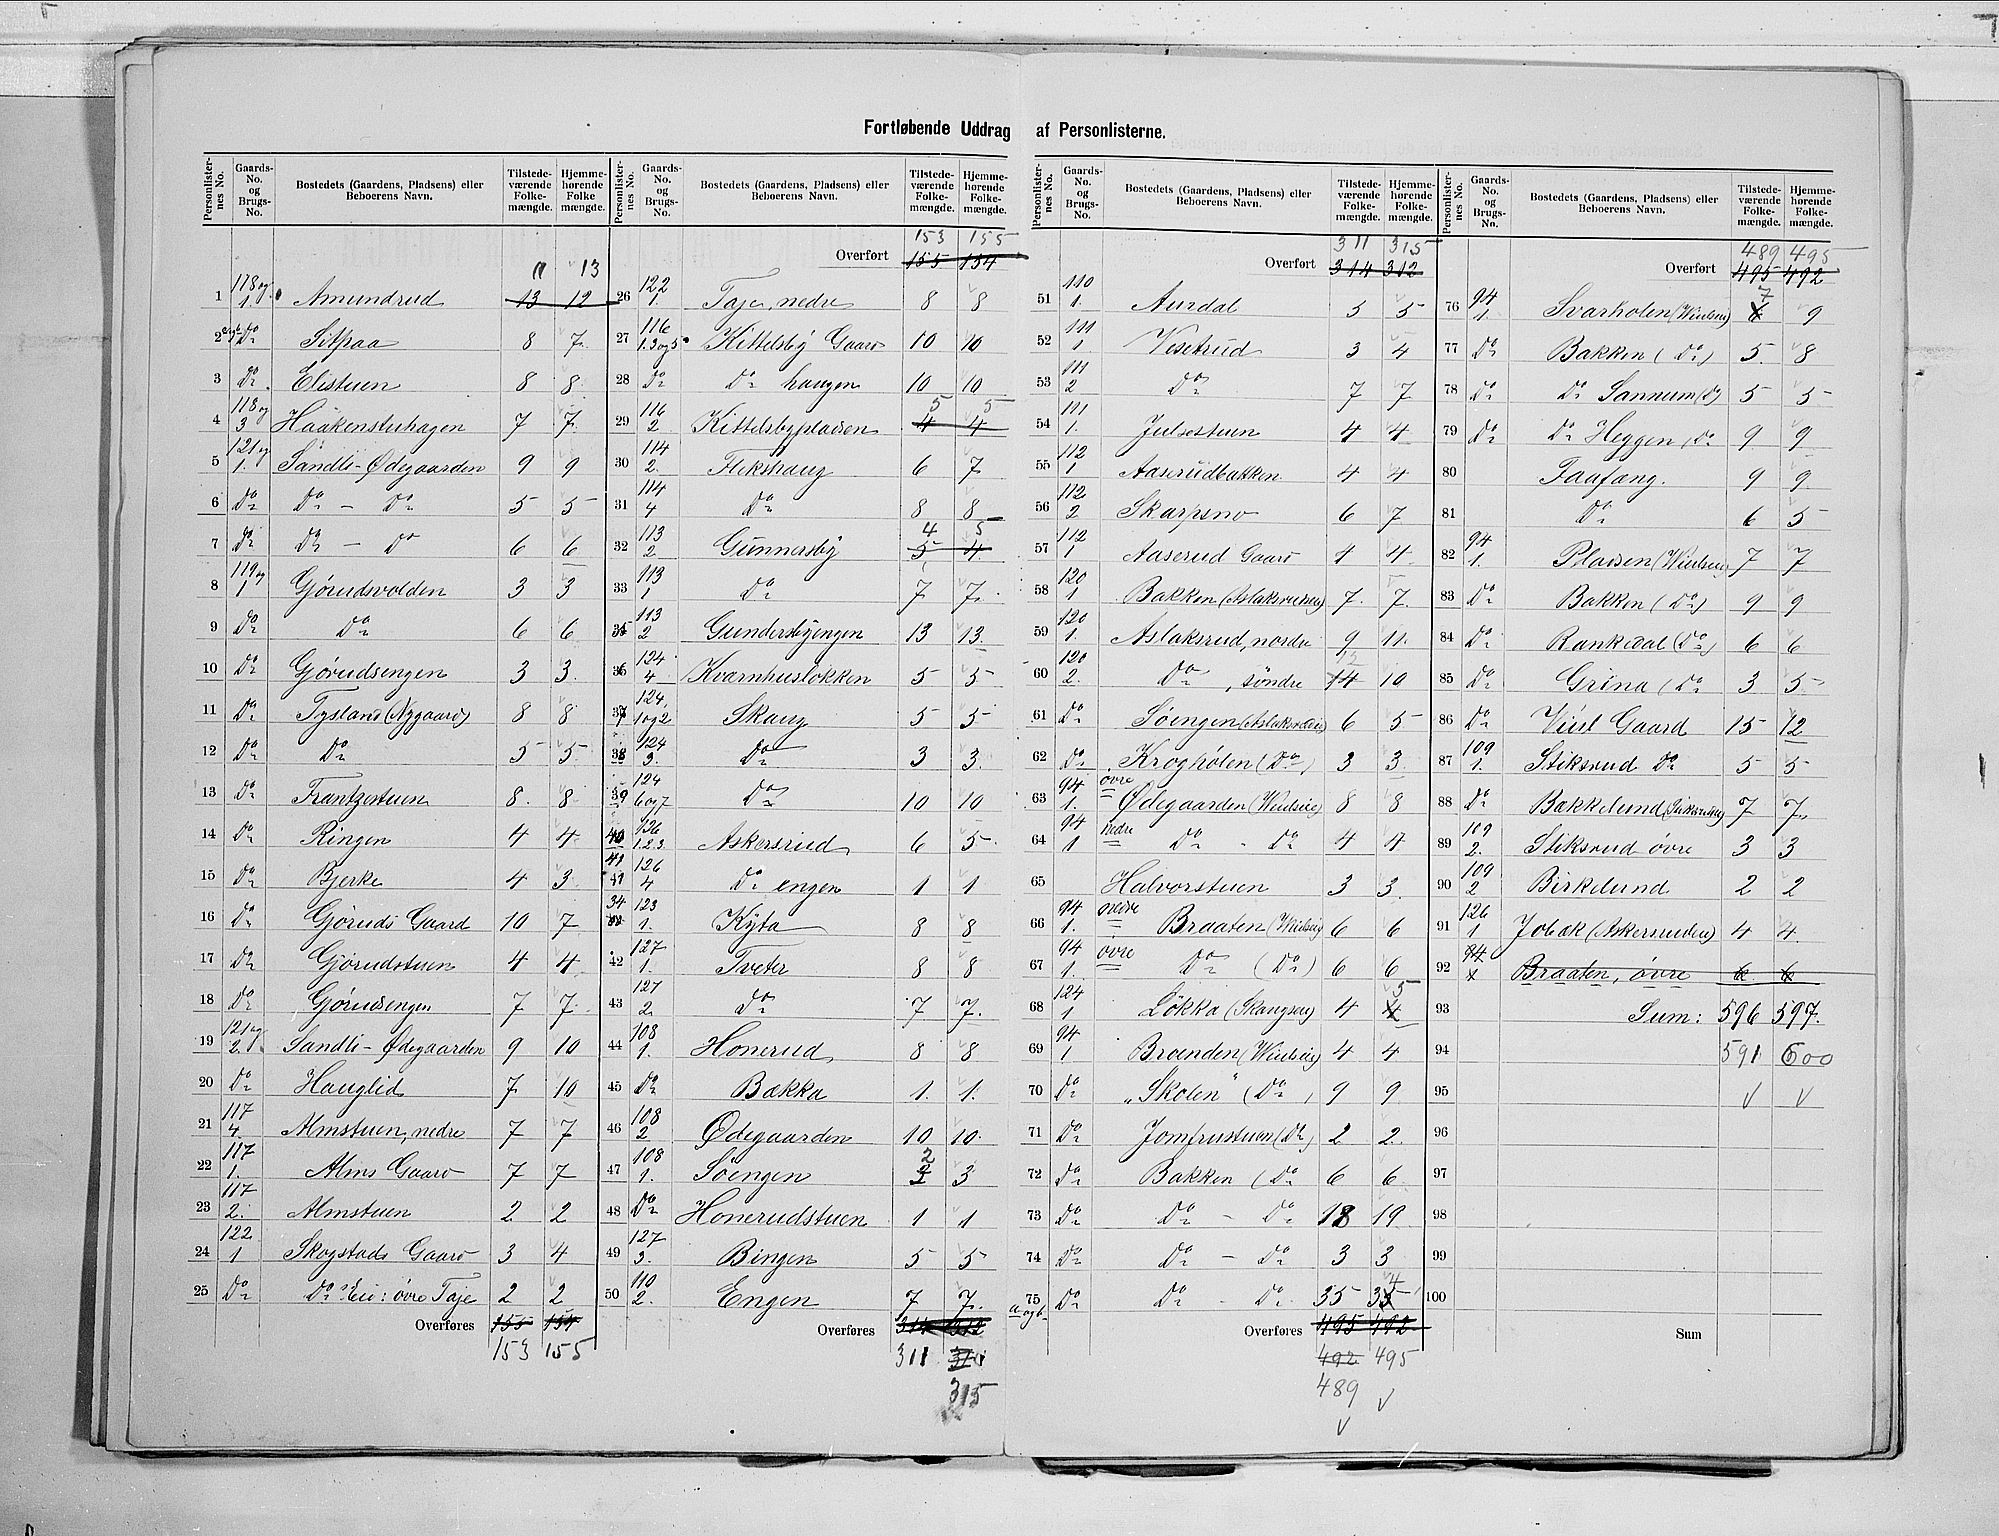 Fortløbende Uddrag af Personlisterne.
Personlister-nes No. Gaards-No. og Brugs-No. Bostedets (Gaardens, Pladsens) eller Beboerens Navn. Tilstede-værende Folke-mængde. Hjemme-hørende Folke mængde.
11 13
1 118 og 1. Amundrud 13 12
2 Do Sitpaa 8 7
3 Do Elistuen 8 8
4 118 og 3 Haakenstuhagen 7 7
5 121 og 1. Sandli-Ødegaarden 9 9
6 Do Do - Do 5 5
7 Do Do - Do 6 6
8 119 og 1 Gjørudsvolden 3 3
9 Do Do 6 6
10 Do Gjørudsengen 3 3
11 Do Tysland (Nygaard) 8 8
12 Do Do 5 5
13 Do Frantzestuen 8 8
14 Do Ringen 4 4
15 Do Bjerke 4 3
16 Do Gjøruds Gaard 10 7
17 Do Gjørudstuen 4 4
18 Do Gjørudsengen 7 7
19 121 og 2. Sandli-Ødegaarden 9 10
20 Do Hauglid 7 10
21 117 4. Almstuen, nedre 7 7
22 117 1. Alms Gaard 7 7
23 117 2. Almstuen 2 2
24 122 1 Skogstads Gaard 3 4
25 Do Do Eie: øvre Taje 2 2
Overføres 155 154
153 155
Personlister-nes No. Gaards-No. og Brugs-No. Bostedets (Gaardens, Pladsens) eller Beboerens Navn. Tilstede-værende Folke-mængde. Hjemme-hørende Folke-mængde.
153 155
Overført 155 154
26 122 1. Taje, nedre 8 8
27 116 1.3 og 5 Kittelsby Gaard 10 10
28 Do Do haugen 10 10
5 5
29 116 2 Kittelsbypladsen 4 4
30 114 2. Flekshaug 6 7
31 114 4 Do 8 8
4 5
32 113 2 Gunnersby 5 4
33 113 1 Do 7 7
113 2 Gundersbyengen 13 13
124 4 Kvarnhusløkken 5 5
124 1 og 2 Skaug 5 5
124 3. Do 3 3
124 6 og 7 Do 10 10
136 1.2.3. Askersrud 6 5
126 4 Do engen 1 1
34 123 1. Kyta 8 8
42 127 1. Tveter 8 8
43 127 2. Do 7 7
44 108 1. Honerud 8 8
45 Do Bakka 1 1
46 108 2 Ødegaarden 10 10
2
47 108 1. Søengen 2 3
48 Do Honerudstuen 1 1
49 127 3. Bingen 5 5
50 110 2. Engen 7 7
Overføres 314 312
311
315
Personlister-nes No. Gaards-No. og Brugs-No. Bostedets (Gaardens, Pladsens) eller Beboerens Navn. Tilstede-værende Folke-mængde. Hjemme-hørende Folke-mængde.
311 315
Overført 314 312
51 110 1. Aurdal 5 5
52 111 1 Vesetrud 3 4
53 111 2 Do 7 7
54 111 1. Julsestuen 4 4
55 112 1 Aaserudbakken 4 4
56 112 2 Skarpsno 6 7
57 112 1 Aaserud Gaard 4 4
58 120 1 Bakken (Aslaksrudseie) 7 7
59 120 1. Aslaksrud, nordre 9 11
12
60 120 2. Do, søndre 14 10
61 Do Søengen (Aslaksrudeie) 6 5
62 Do Kroghølen (Do) 3 3
63 94 1. øvre Ødegaarden (Wiulseie) 8 8
64 94 1 nedre Do - Do 4 4
65 Halvorstuen 3 3
66 94 1. nedre Braaten (Wiulseie) 6 6
67 94 1. øvre Do (Do) 6 6
5
68 124 1 Løkka (Skaugseie) 4 4
69 94 1 Brænden (Wiulseie) 4 4
70 Do „Skolen" (Do) 9 9
71 Do Jomfrustuen (Do) 2 2
72 Do Bakken (Do 6 6
73 Do Do - Do 18 19
74 Do Do - Do 3 3
75 a og b. Do Do - Do 35 35 4
Overføres 495 492
492 495
489
Personlister-nes No. Gaards-No. og Brugs-No. Bostedets (Gaardens, Pladsens) eller Beboerens Navn. Tilstede-værende Folke-mængde. Hjemme-hørende Folke-mængde.
489 495
Overført 495 492
76 94 1 Svarholen (Wiulseie) 7 9
77 Do Bakken (Do) 5 8
78 Do Do Sannum (Do) 5 5
79 Do Do Heggen, Do 9 9
80 Faafang. 9 9
81 Do 6 5
82 94 1. Pladsen (Wiulseie) 7 7
83 Do Bakken (Do) 9 9
84 Do Rankedal (Do) 6 6
85 Do Grina (Do 3 5
86 Do Viul Gaard 15 12
87 109 1. Stiksrud Do 5 5
88 Do Bakkelund (Stiksrudeie) 7 7
89 109 2. Stiksrud øvre 3 3
90 109 2 Birkelund 2 2
91 126 1 Jobak (Askersrudeie) 4 4
92 94 1 Braaten, øvre 6 6
93 Sum: 596 597.
94 591 600
95
96
97
98
99
100
Sum